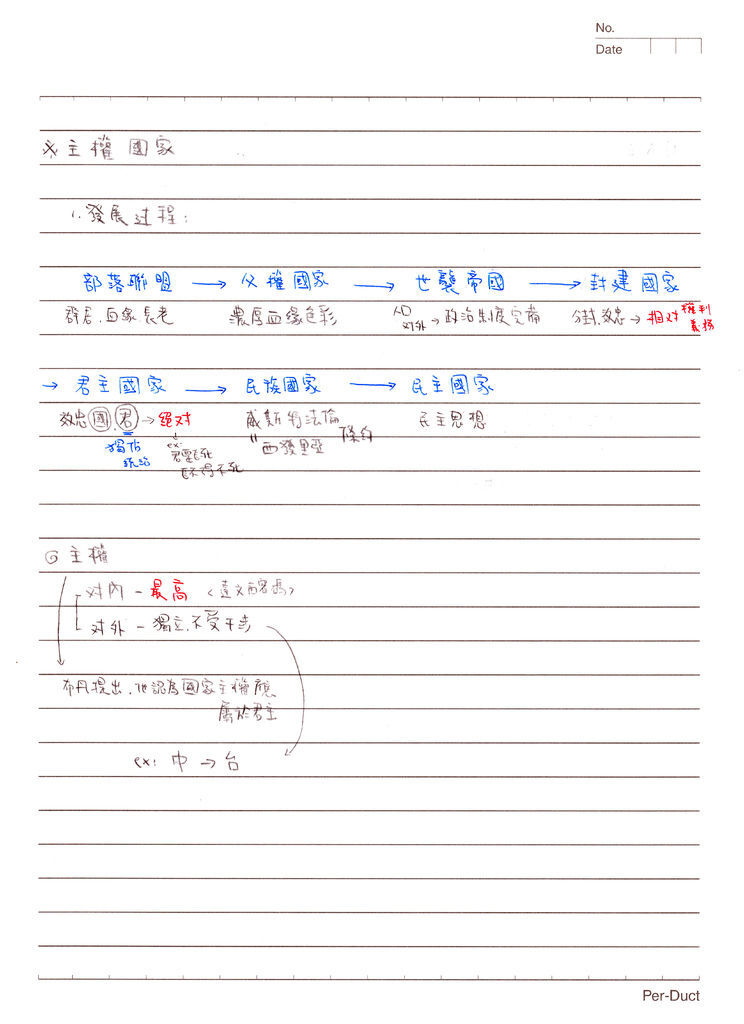 No.
Date
※主權國家
1. 發展过程:
部落聯盟 → 父權國家 → 世襲帝國 → 封建國家
群居.由家長老 濃厚血緣色彩 人口 对外 → 政治制度完備 分封.效忠 → 相对 權利 義務
→ 君主國家 → 民族國家 → 民主國家
效忠國.君 → 絕对 威斯特法倫 條約 民主思想
獨佔 統治 ex: 君要臣死 臣不得不死 " 西發里亞
◎主權
对內 - 最高
对外 - 獨立.不受干涉
布丹提出.他認為國家主權應
屬於君主
ex: 中 → 台
Per-Duct